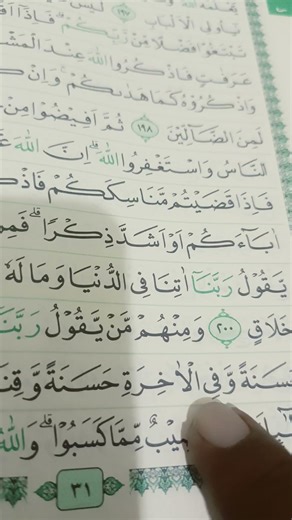 يٰٓاُولِى الْاَلْبَابِ
تَبْتَغُوْا فَضْلًا مِّنْ رَّبِّكُمْ ۗ فَاِذَآ
عَرَفٰتٍ فَاذْكُرُوا اللّٰهَ عِنْدَ الْمَشْ
وَاذْكُرُوْهُ كَمَا هَدٰىكُمْ ۚ وَاِنْ
لَمِنَ الضَّاۤلِّيْنَ ١٩٨ ثُمَّ اَفِيْضُوْا مِنْ
النَّاسُ وَاسْتَغْفِرُوا اللّٰهَ ۗ اِنَّ اللّٰهَ
فَاِذَا قَضَيْتُمْ مَّنَاسِكَكُمْ فَاذْك
اٰبَاۤءَكُمْ اَوْ اَشَدَّ ذِكْرًا ۗ فَمِ
يَّقُوْلُ رَبَّنَآ اٰتِنَا فِى الدُّنْيَا وَمَا لَهٗ
خَلَاقٍ ٢٠٠ وَمِنْهُمْ مَّنْ يَّقُوْلُ رَبَّنَ
حَسَنَةً وَّفِى الْاٰخِرَةِ حَسَنَةً وَّقِنَ
مِّمَّا كَسَبُوْا ۗ وَاللّٰهُ
٣١